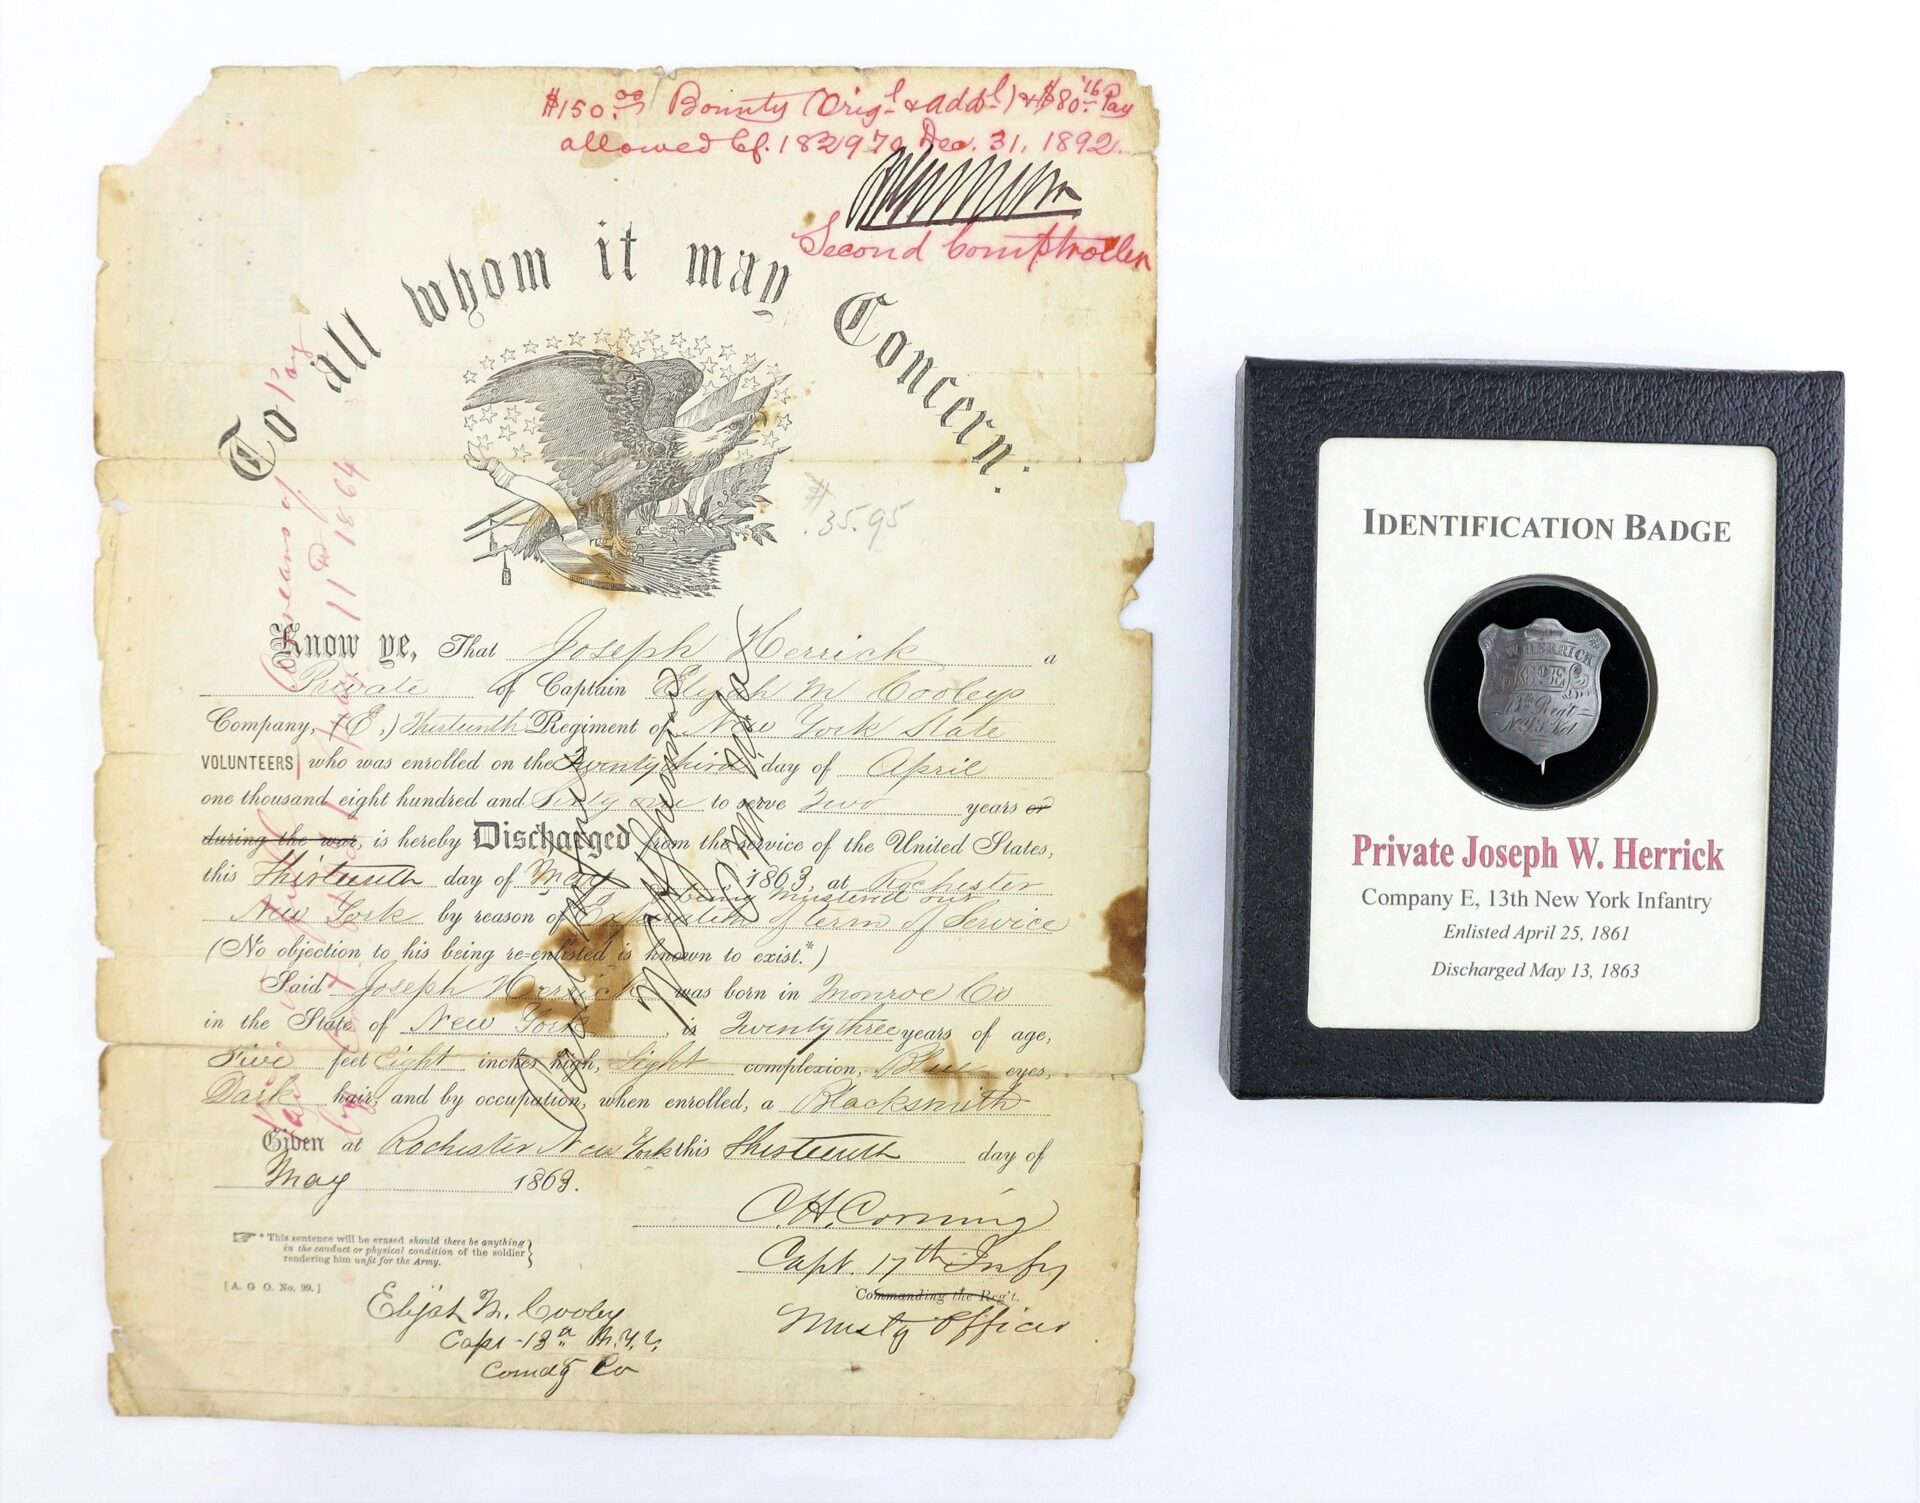 $150.00 Bounty (Orig.l & add.l) & $80.16 Pay
allowed Cf. 182970 Dec. 31, 1892.
Second Comptroller
To all whom it may Concern:
$35.95
Know ye, That Joseph Herrick a
Private of Captain Elijah M Cooleys
Company, (E,) Thirteenth Regiment of New York State
VOLUNTEERS who was enrolled on the Twenty third day of April
one thousand eight hundred and Sixty one to serve Two years or
during the war, is hereby Discharged from the service of the United States,
this Thirteenth day of May, 1863, at Rochester
New York by reason of being mustered out Expiration of term of Service
(No objection to his being re-enlisted is known to exist.*)
Said Joseph Herrick was born in Monroe Co
in the State of New York, is Twenty three years of age,
Five feet Eight inches high, Light complexion, Blue eyes,
Dark hair, and by occupation, when enrolled, a Blacksmith
Given at Rochester New York this Thirteenth day of
May 1863.
C. H. Corning
Capt. 17th Infy
Commanding the Reg't.
Musty Officer
* This sentence will be erased should there be anything
in the conduct or physical condition of the soldier
rendering him unfit for the Army.
[A. G O. No. 99.]
Elijah M. Cooley
Capt - 13th N.Y.V.
Comdg Co
Pay
11th 1864
IDENTIFICATION BADGE
W. HERRICK
Co E
13th Reg't
N.Y.S. Vol
Private Joseph W. Herrick
Company E, 13th New York Infantry
Enlisted April 25, 1861
Discharged May 13, 1863